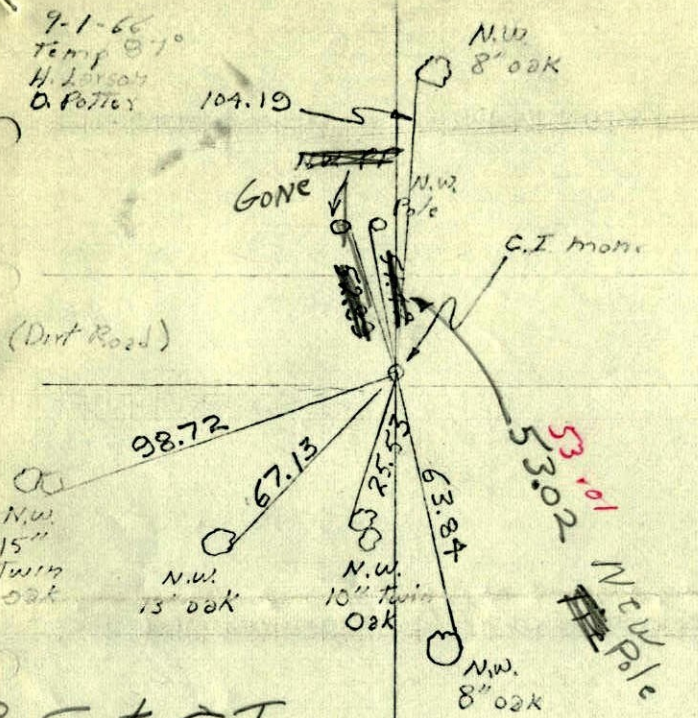 9-1-66
Temp 87°
H. Larson
D. Potter
N.W.
8" oak
104.19
GONE
N.W.
Pole
C.I. mon.
(Dirt Road)
98.72
67.13
25.53
63.84
53.02
New
Pole
N.W.
15"
Twin
oak
N.W.
13" oak
N.W.
10" Twin
Oak
N.W.
8" oak